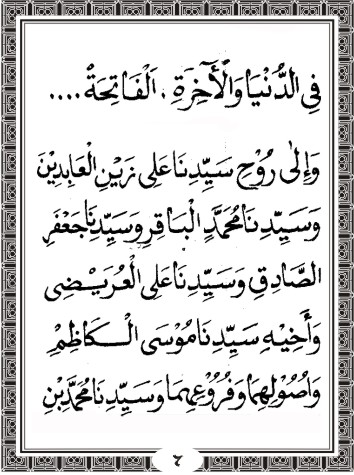 فِي الدُّنْيَا وَالْآخِرَةِ ، اَلْفَاتِحَةُ ....
وَإِلَى رُوْحِ سَيِّدِنَا عَلِى زَيْنِ الْعَابِدِيْنَ
وَسَيِّدِنَا مُحَمَّدٍ الْبَاقِرِ وَسَيِّدِنَا جَعْفَرِ
الصَّادِقِ وَسَيِّدِنَا عَلِى الْعُرَيْضِى
وَأَخِيْهِ سَيِّدِنَا مُوْسَى الْكَاظِمْ
وَأُصُوْلِهِمَا وَفُرُوْعِهِمَا وَسَيِّدِنَا مُحَمَّدِبْنِ
٤